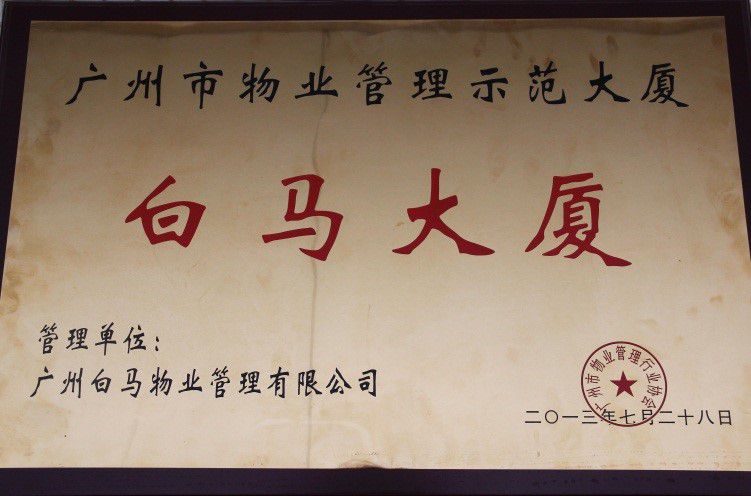 广州市物业管理示范大厦
白马大厦
管理单位：
广州白马物业管理有限公司
广州市物业管理行业协会
二〇一三年七月二十八日